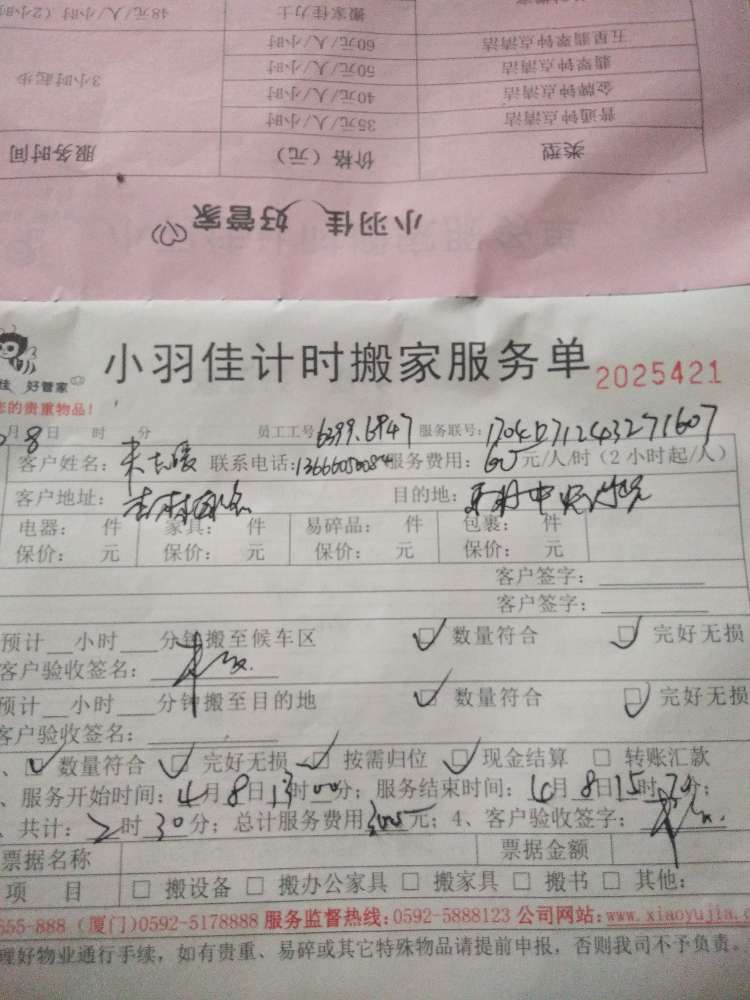 搬家佳力士 48元/人/小时（2小时
五星翡翠钟点清洁 60元/人/小时
翡翠钟点清洁 50元/人/小时 3小时起步
金牌钟点清洁 40元/人/小时
普通钟点清洁 35元/人/小时
类型 价格（元） 服务时间
小羽佳 好管家
佳 好管家
小羽佳计时搬家服务单 2025421
您的贵重物品！
月8日 时 分 员工工号 6399.6947 服务联号: 1704071243271607
客户姓名: 联系电话:13666050084 服务费用: 60元/人/时（2小时起/人）
客户地址: 目的地:
电器: 件 家具: 件 易碎品: 件 包裹: 件
保价: 元 保价: 元 保价: 元 保价: 元
客户签字:
客户签字:
预计__小时___分钟搬至候车区 □ 数量符合 □ 完好无损
客户验收签名:
预计__小时___分钟搬至目的地 □ 数量符合 □ 完好无损
客户验收签名:
、□ 数量符合 □ 完好无损 □ 按需归位 □ 现金结算 □ 转账汇款
、服务开始时间: 4月8日13时00分; 服务结束时间: 4月8日15时30分;
、共计: 2时30分; 总计服务费用300元; 4、客户验收签字:
票据名称 票据金额
项 目 □ 搬设备 □ 搬办公家具 □ 搬家具 □ 搬书 □ 其他:
555-888 (厦门)0592-5178888 服务监督热线:0592-5888123 公司网站:www.xiaoyujia.c
理好物业通行手续，如有贵重、易碎或其它特殊物品请提前申报，否则我司不予负责。